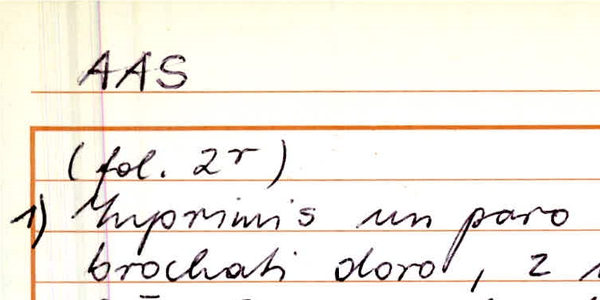 AAS
(fol. 2r)
1) Inprimis un paro
brochati doro, 2